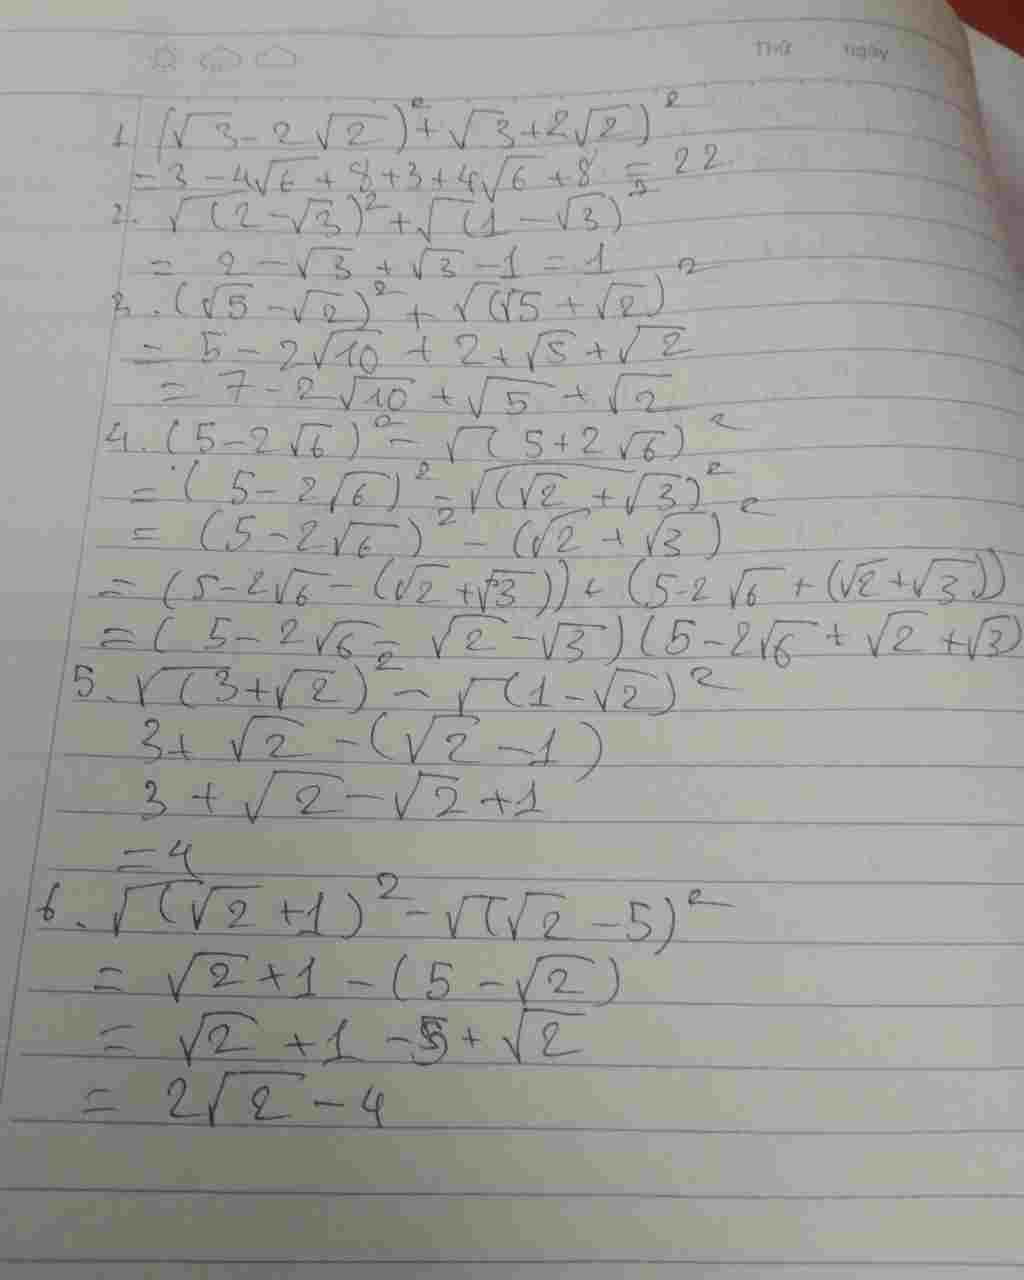 Thứ ngày
1. (√3 - 2√2)² + √3 + 2√2)²
= 3 - 4√6 + 8 + 3 + 4√6 + 8 = 22
2. √(2 - √3)² + √(1 - √3)²
= 2 - √3 + √3 - 1 = 1
3. (√5 - √2)² + √(√5 + √2)²
= 5 - 2√10 + 2 + √5 + √2
= 7 - 2√10 + √5 + √2
4. (5 - 2√6)² - √(5 + 2√6)²
= (5 - 2√6)² - √(√2 + √3)²
= (5 - 2√6)² - (√2 + √3)²
= (5 - 2√6 - (√2 + √3)) (5 - 2√6 + (√2 + √3))
= (5 - 2√6 - √2 - √3)(5 - 2√6 + √2 + √3)
5. √(3 + √2)² - √(1 - √2)²
3 + √2 - (√2 - 1)
3 + √2 - √2 + 1
= 4
6. √(√2 + 1)² - √(√2 - 5)²
= √2 + 1 - (5 - √2)
= √2 + 1 - 5 + √2
= 2√2 - 4